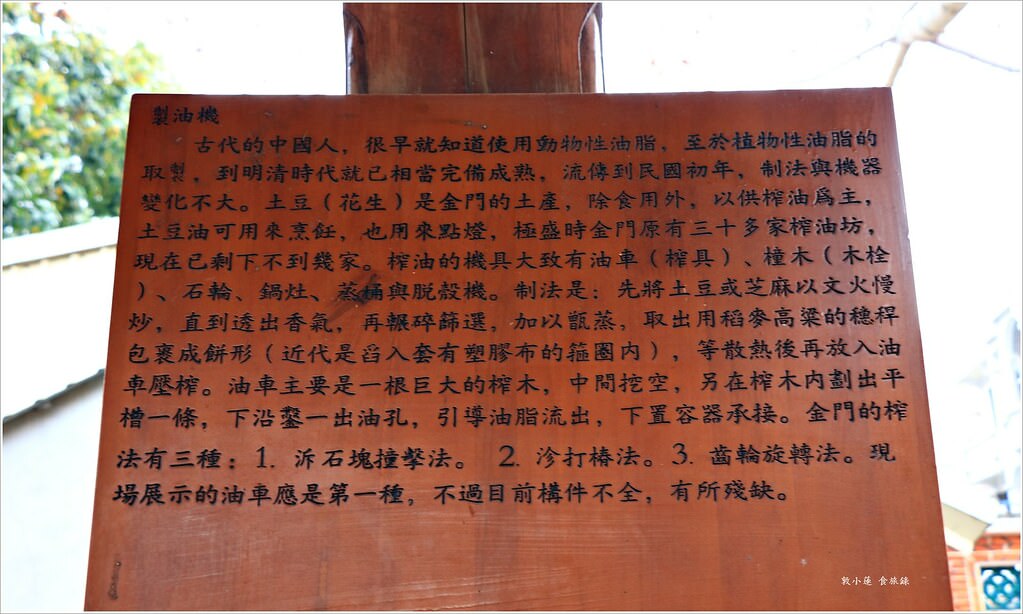 製油機
古代的中國人，很早就知道使用動物性油脂，至於植物性油脂的
取製，到明清時代就已相當完備成熟，流傳到民國初年，制法與機器
變化不大。土豆（花生）是金門的土產，除食用外，以供榨油爲主，
土豆油可用來烹飪，也用來點燈，極盛時金門原有三十多家榨油坊，
現在已剩下不到幾家。榨油的機具大致有油車（榨具）、橦木（木栓
）、石輪、鍋灶、蒸桶與脱殼機。制法是：先將土豆或芝麻以文火慢
炒，直到透出香氣，再輾碎篩選，加以甑蒸，取出用稻麥高粱的穗稈
包裹成餅形（近代是舀入套有塑膠布的箍圈内），等散熱後再放入油
車壓榨。油車主要是一根巨大的榨木，中間挖空，另在榨木内劃出平
槽一條，下沿鑿一出油孔，引導油脂流出，下置容器承接。金門的榨
法有三種：1. 泝石塊撞擊法。 2. 沴打樁法。3. 齒輪旋轉法。現
場展示的油車應是第一種，不過目前構件不全，有所殘缺。
敦小蓮 食旅錄